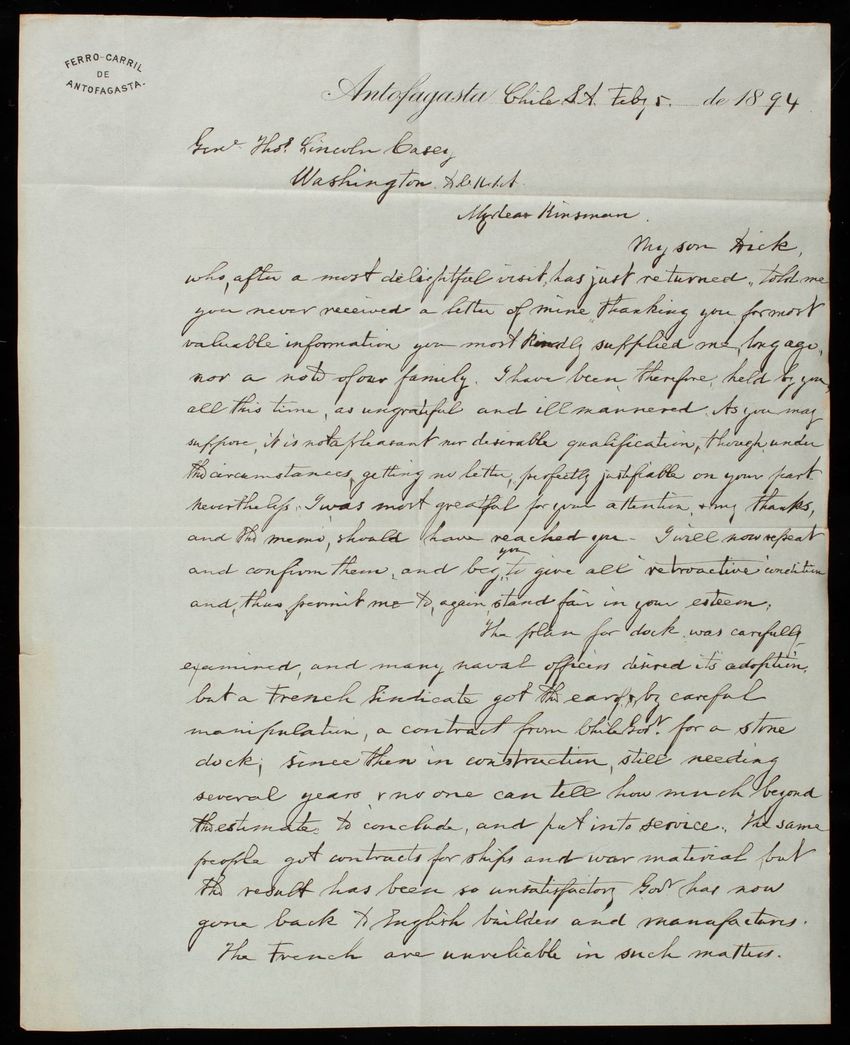 FERRO-CARRIL
DE
ANTOFAGASTA.
Antofagasta Chile S.A. Feby 5. de 1894
Genl. Thos. Lincoln Casey
Washington D.C. U.S.A.
My dear Kinsman.
My son Dick,
who, after a most delightful visit, has just returned, told me
you never received a letter of mine, thanking you for most
valuable information you most kindly supplied me, long ago,
nor a note of our family. I have been, therefore, held by you,
all this time, as ungrateful and ill mannered. As you may
suppose, it is not a pleasant nor desirable qualification, though, under
the circumstances, getting no letter, perfectly justifiable on your part.
Nevertheless, I was most greatful for your attention, & my thanks,
and the memo, should have reached you - I will now repeat
and confirm them, and beg, you to give all "retroactive" condition
and, thus permit me to, again, stand fair in your esteem.
The plan for dock, was carefully
examined, and many naval officers desired its adoption,
but a French Sindicate got the ear of, by careful
manipulation, a contract from Chile Govt. for a stone
dock; since then in construction, still needing
several years & no one can tell how much beyond
the estimate to conclude, and put into service. The same
people got contracts for ships and war material but
the result has been so unsatisfactory Govt has now
gone back to English builders and manufactures.
The French are unreliable in such matters.